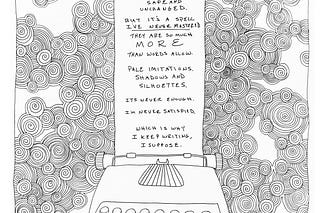 SAFE AND
UNCHANGED.
BUT IT'S A SPELL
I'VE NEVER MASTERED
THEY ARE SO MUCH
MORE
THAN WORDS ALLOW.
PALE IMITATIONS.
SHADOWS AND
SILHOUETTES.
IT'S NEVER ENOUGH.
I'M NEVER SATISFIED.
WHICH IS WHY
I KEEP WRITING,
I SUPPOSE.